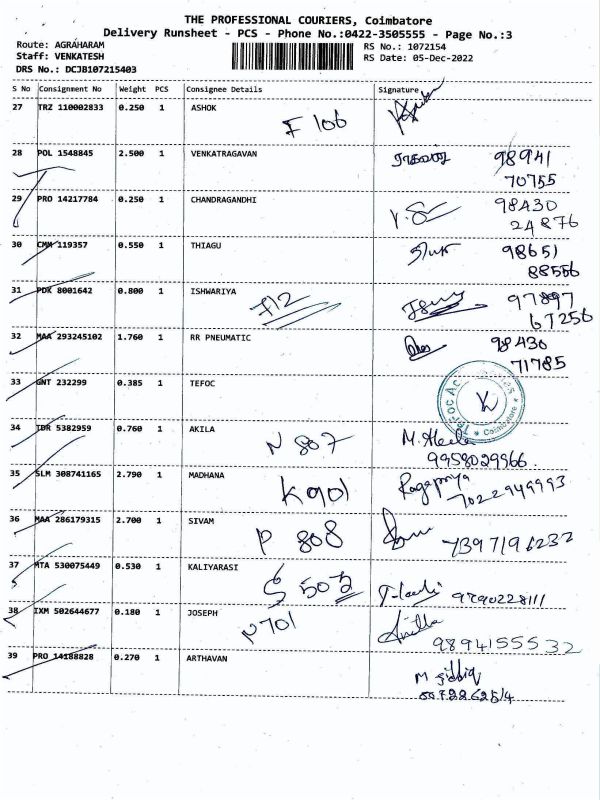 THE PROFESSIONAL COURIERS, Coimbatore
Delivery Runsheet - PCS - Phone No.:0422-3505555 - Page No.:3
Route: AGRAHARAM
RS No.: 1072154
Staff: VENKATESH
RS Date: 05-Dec-2022
DRS No.: DCJB107215403
S No Consignment No Weight PCS Consignee Details Signature
27 TRZ 110002833 0.250 1 ASHOK
F 106
28 POL 1548845 2.500 1 VENKATRAGAVAN 98941
70755
29 PRO 14217784 0.250 1 CHANDRAGANDHI 98430
24876
30 CMM 119357 0.550 1 THIAGU 98651
88556
31 PDK 8001642 0.800 1 ISHWARIYA 97897
712 67256
32 MAA 293245102 1.760 1 RR PNEUMATIC 98430
71785
33 GNT 232299 0.385 1 TEFOC
Coimbatore
34 IDR 5382959 0.760 1 AKILA
N 807 M. Akila
9958029966
35 SLM 308741165 2.790 1 MADHANA
K901 Ragapriya
7022949993
36 MAA 286179315 2.700 1 SIVAM
P 808 7397196232
37 MTA 530075449 0.530 1 KALIYARASI
S 503 9790228111
38 IXM 502644677 0.180 1 JOSEPH
N701 Anitha
9894155532
39 PRO 14188828 0.270 1 ARTHAVAN
M siddiq